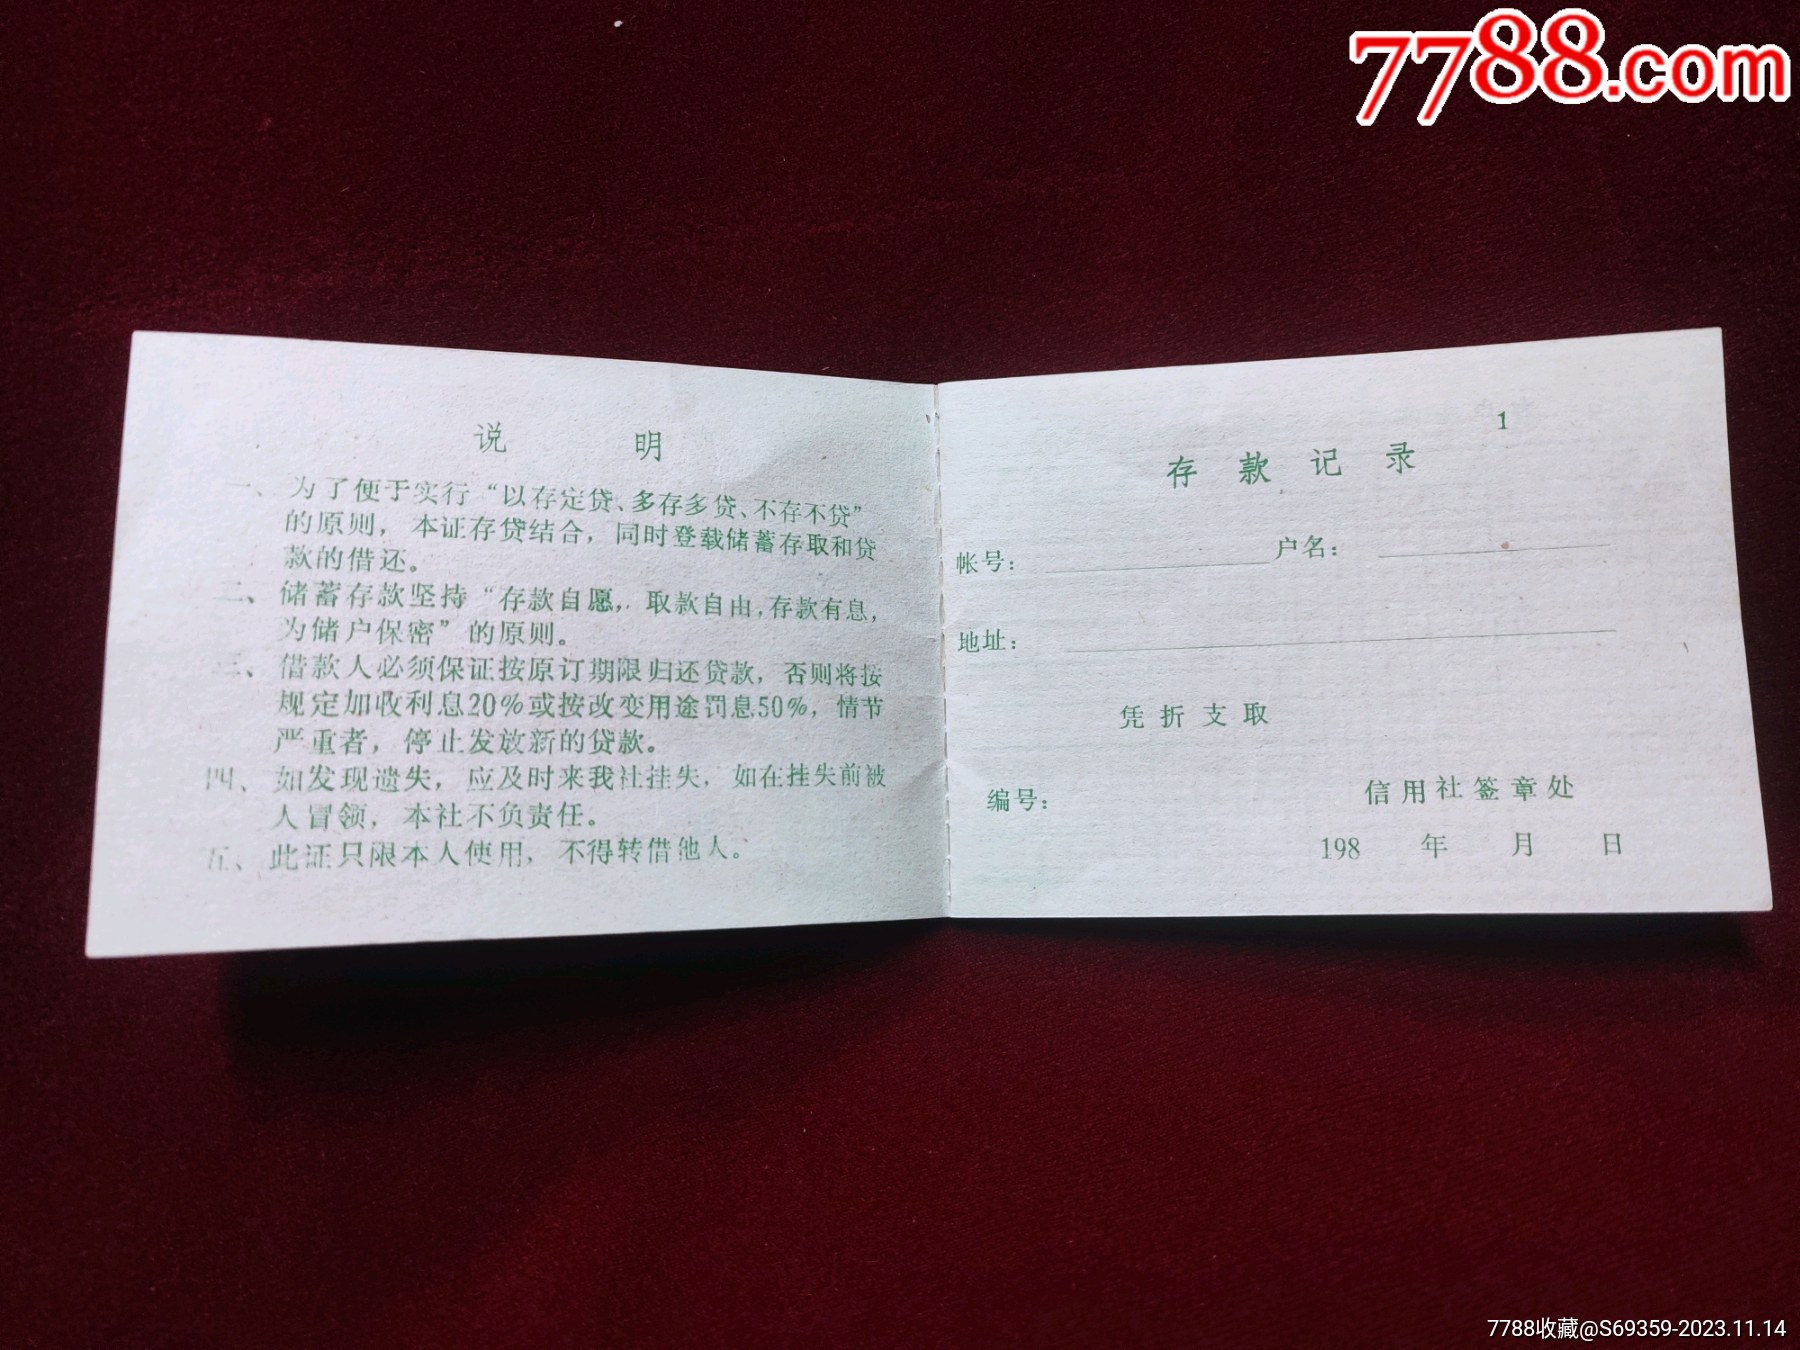 7788.com
说 明
一、为了便于实行“以存定贷、多存多贷、不存不贷”
的原则，本证存贷结合，同时登载储蓄存取和贷
款的借还。
二、储蓄存款坚持“存款自愿，取款自由，存款有息，
为储户保密”的原则。
三、借款人必须保证按原订期限归还贷款，否则将按
规定加收利息20%或按改变用途罚息50%，情节
严重者，停止发放新的贷款。
四、如发现遗失，应及时来我社挂失，如在挂失前被
人冒领，本社不负责任。
五、此证只限本人使用，不得转借他人。
1
存款记录
帐号： 户名：
地址：
凭折支取
编号：
信用社签章处
198 年 月 日
7788收藏@S69359-2023.11.14